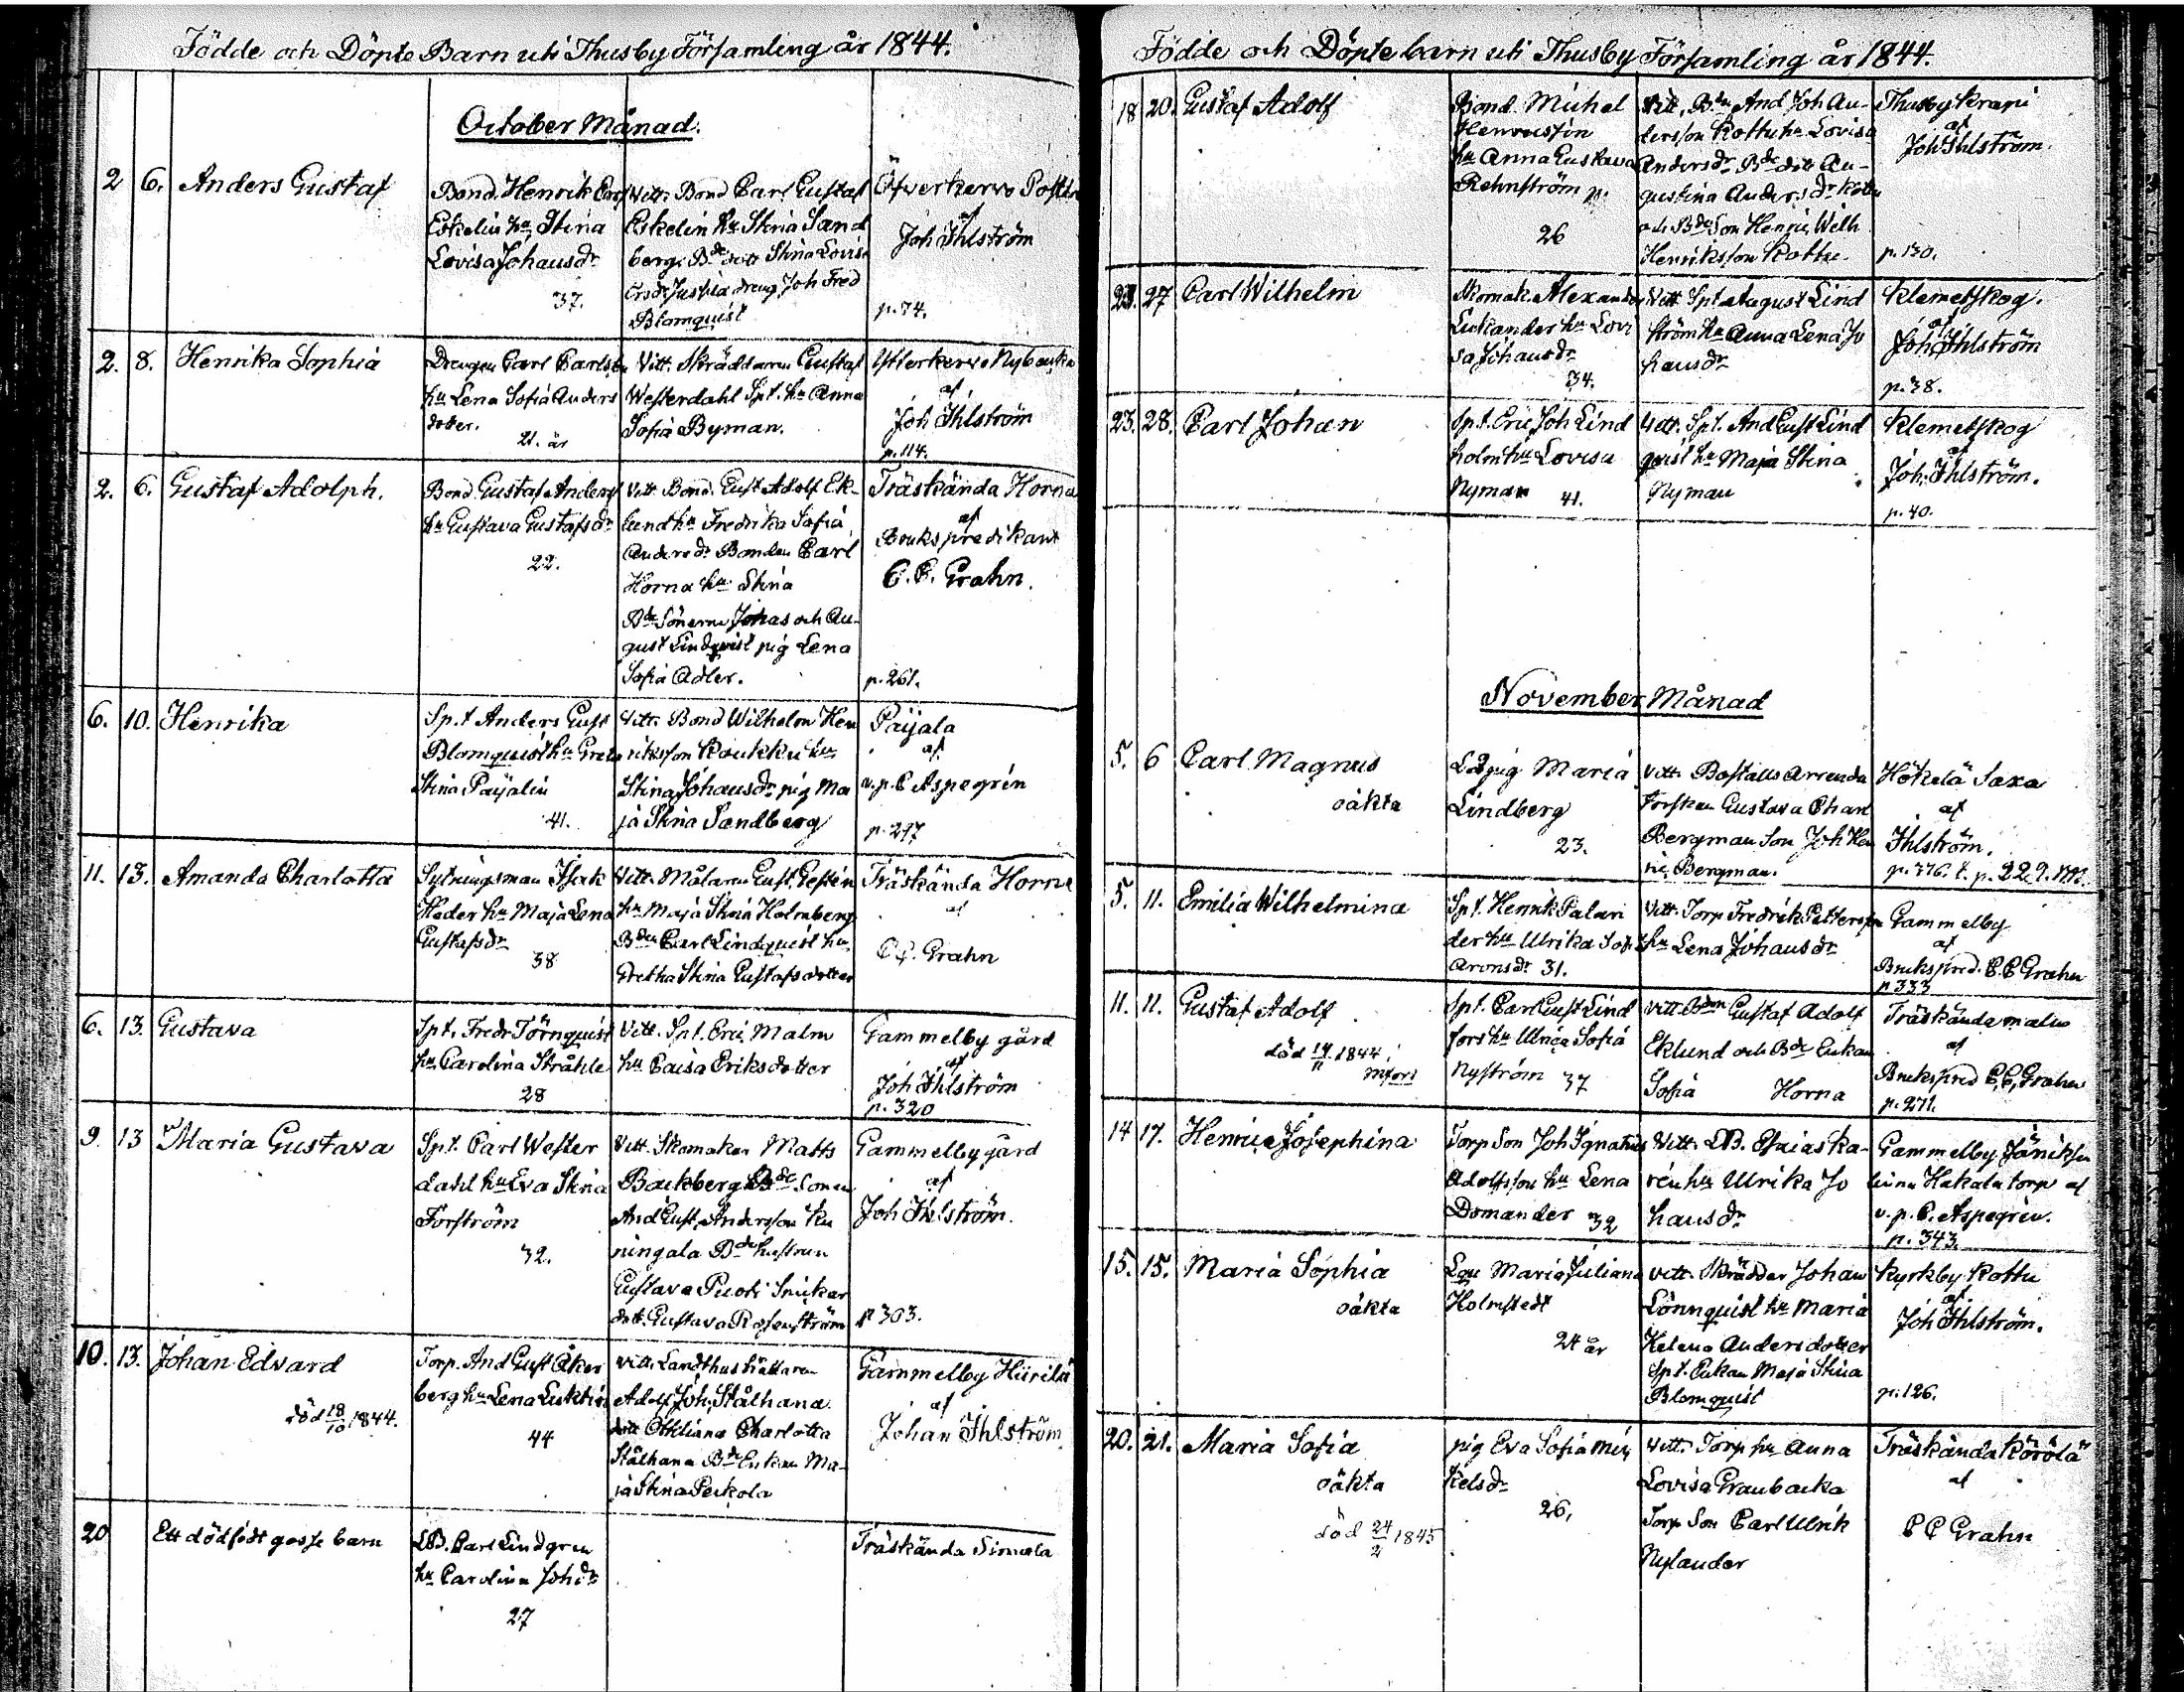 Födde och Döpte Barn uti Thusby Församling år 1844.
October Månad.
2 6. Anders Gustaf
Bond. Henrik
Eskelin hu Stina
Lovisa Johansdr
37.
Vitt. Bond Carl Gustaf
Eskelin hu Stina Sand
berg. Bde dott Stina Lovisa
dreng Joh Fred
Blomquist
Öfverkervo
af
Joh Ihlström
p. 74.
2. 8. Henrika Sophia
Drengen Carl Carlson
hu Lena Sofia Anders
dotter.
21. år
Vitt. Skräddaren Gustaf
Westerdahl Spt. hu Anna
Sofia Byman.
Ytterkervo Nybacka
af
Joh Ihlström
p. 114.
2. 6. Gustaf Adolph.
Bond Gustaf Anders
hu Gustava Gustafsdr
22.
Vitt. Bond. Gust Adolf Ek-
lund hu Fredrika Sofia
Andersdr Bonden Carl
Horna hu Stina
Bde Sönerne Johas och Au-
gust Lindqvist pig Lena
Sofia Adler.
Träskända Horna
af
Brukspredikant
C. C. Grahn.
p. 261.
6. 10. Henrika
Sp.t Anders Gust
Blomquist hu Greta
Stina Paijalin
41.
Vitt. Bond Wilhelm Hen
riksson Koukku hu
Stina Johansdr pig Ma
ja Stina Sandberg
Paijala
af
v. p. C Aspegrén
p. 297
11. 13. Amanda Charlotta
Sytningsman Isak
Heder hu Maja Lena
Gustafsdr
38
Vitt. Målaren Gust.
hu Maja Stina Holmberg
Bden Carl Lindquist hu
Gretha Stina Gustafsdotter
Träskända Horna
af
C C. Grahn
6. 13. Gustava
Spt. Fredr Törnquist
hu Carolina Stråhle
28
Vitt. Spt. Eric Malm
hu Caisa Eriksdotter
Gammelby gård
af
Joh Ihlström
p. 320
9. 13 Maria Gustava
Spt. Carl Wester
dahl hu Eva Stina
Forström
32.
Vitt. Skomakar Matts
Backberg Bde Sonen
And Gust. Andersson Ku
ningala Bde hustrun
Gustava Puoti Snickar
dott. Gustava Rosenström
Gammelby gård
af
Joh Ihlström.
p 303.
10. 13. Johan Edvard
död 18/10 1844.
Torp. And Gust Åker
berg hu Lena
44
Vitt. Landthushållaren
Adolf Joh. Stålhana
dott Ottiliana Charlotta
Stålhana Bde Enkan Ma-
ja Stina Peckola
Gammelby Hiirilä
af
Johan Ihlström
20 Ett dödfödt gosse barn
LB. Carl Lindgren
hu Carolina Johdr
27
Träskända Simola
Födde och Döpte barn uti Thusby Församling år 1844.
18 20. Gustaf Adolf
Bond. Michel
hu Anna Gustava
Rehnström p.
26
Vitt. Bdn And Joh An-
dersson Kottu hu Lovisa
Andersdr Bde dott Au-
gustina Andersdr Kottu
och Bde Son Henric Wilh
Henriksson Kottu
Thusby Krapi
af
Joh Ihlström.
p. 130.
23. 27 Carl Wilhelm
Skomak. Alexander
Lukander hu Lovi
sa Johansdr
34.
Vitt Spt August Lind
ström hu Anna Lena Jo
hansdr
Klemetskog.
af
Joh Ihlström
p. 38.
23. 28. Carl Johan
Spt. Eric Joh Lind
holm hu Lovisa
Nyman 41.
Vitt. Spt. And Gust Lind
quist hu Maja Stina
Nyman
Klemetskog
af
Joh. Ihlström.
p. 40.
November Månad
5. 6 Carl Magnus
oäkta
pig Maria
Lindberg
23.
Vitt. Boställs Arrenda
torskan Gustava Charl
Bergman Son Joh Hen
ric Bergman.
Hötelä Saxa
af
Ihlström.
p. 376. t. p. 229.
5. 11. Emilia Wilhelmina
Spt. Henrik Palan
der hu Ulrika Sofi
Aronsdr 31.
Vitt. Torp Fredrik Petterson
hu Lena Johansdr
Gammelby
af
Brukspred. C. C Grahn
p 333
11. 11. Gustaf Adolf
död 14/11 1844
Spt. Carl Gust Lind
fors hu Ulrica Sofia
Nyström 37
Vitt. Bden Gustaf Adolf
Eklund och Bde Enkan
Sofia Horna
Träskända malm
af
Brukspred C. C. Grahn
p. 271.
14 17. Henrica Josephina
Torp Son Joh Ignatius
Adolfsson hu Lena
Domander 32
Vitt. LB. Esaias Ka-
rén hu Ulrika Jo
hansdr
Gammelby
Hakala torp af
v. p. C. Aspegrén.
p. 343.
15. 15. Maria Sophia
oäkta
Maria Juliana
Holmstedt
24 år
Vitt. Skrädder Johan
Lönnquist hu Maria
Helena Andersdotter
Spt. Enkan Maja Stina
Blomquist
Kyrkby Kottu
af.
Joh Ihlström.
p. 126.
20. 21. Maria Sofia
oäkta
död 24/2 1845
pig Eva Sofia Mic
kelsdr
26,
Vitt. Torp hu Anna
Lovisa Granbacka
Torp Son Carl Ulrik
Nylander
Träskända Körölä
af
C C Grahn